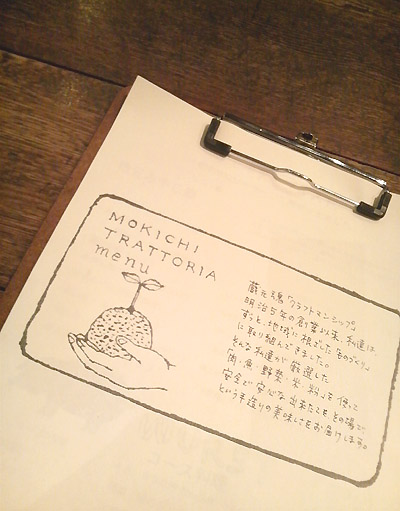 MOKICHI
TRATTORIA
menu
蔵元魂「クラフトマンシップ」
明治5年の創業以来、私達は
ずっと、地域に根ざした「ものづくり」
に取り組んできました。
そんな私達が厳選した
「肉・魚・野菜・米・粉」を使って
安全で安心な出来たてをその場で
という手造りの美味しさをお届けします。